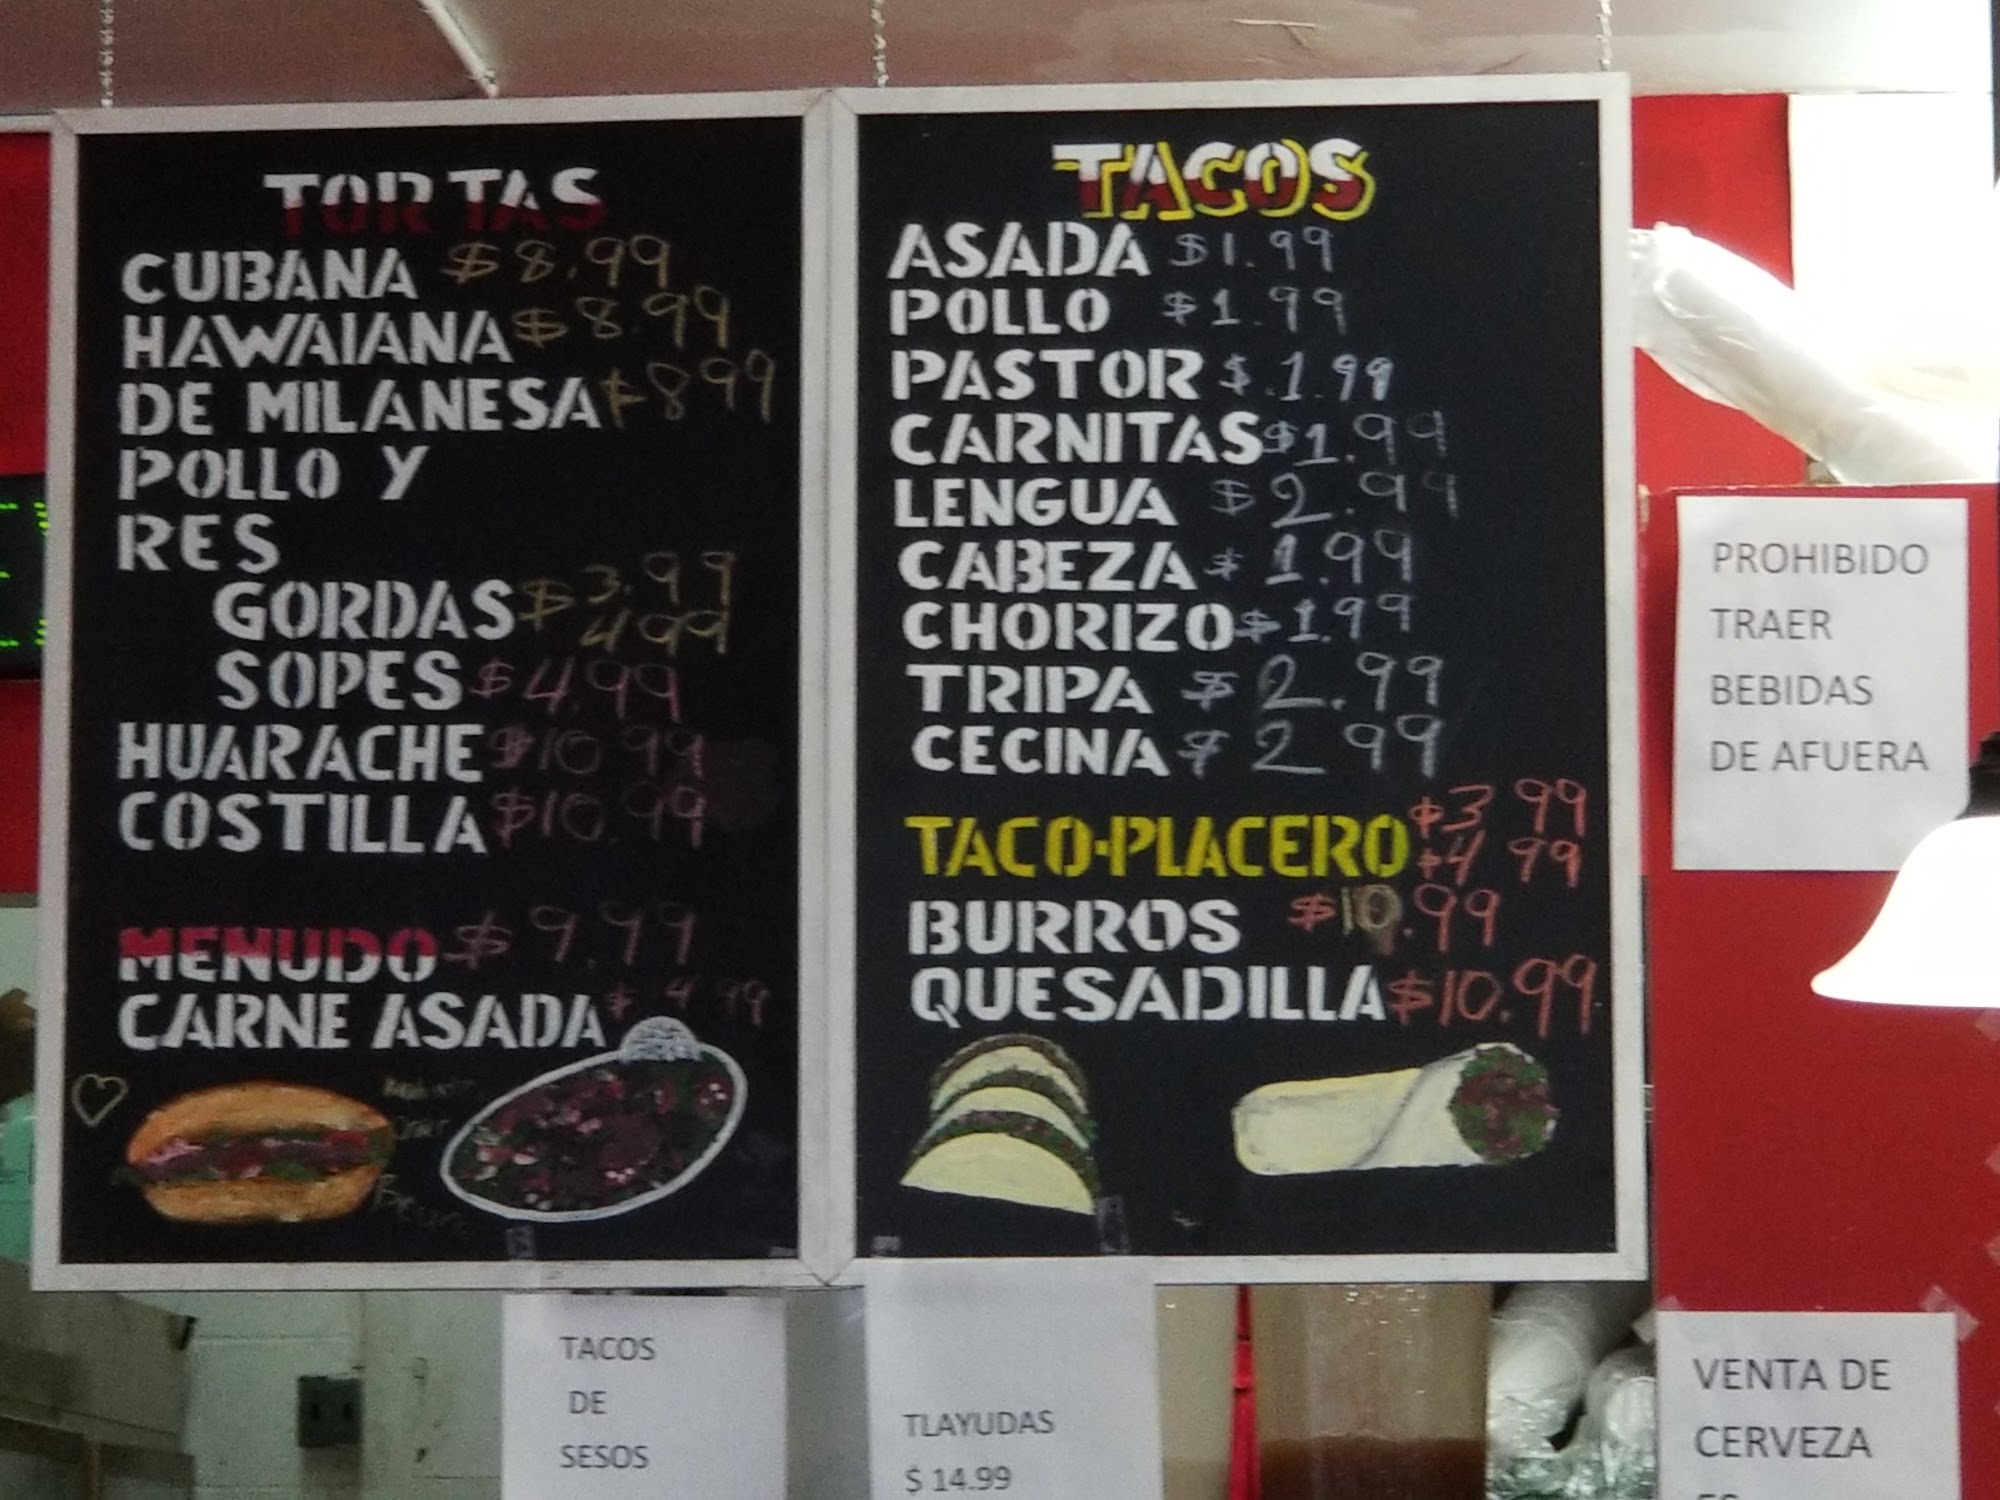 TORTAS
CUBANA $8.99
HAWAIANA $8.99
DE MILANESA $899
POLLO Y
RES
GORDAS $3.99
499
SOPES $4.99
HUARACHE $10.99
COSTILLA $10.99
MENUDO $9.99
CARNE ASADA $4.99
TACOS
ASADA $1.99
POLLO $1.99
PASTOR $.1.99
CARNITAS $1.99
LENGUA $2.99
CABEZA $1.99
CHORIZO $1.99
TRIPA $2.99
CECINA $2 99
TACO-PLACERO $3 99
$4 99
BURROS $10.99
QUESADILLA $10.99
PROHIBIDO
TRAER
BEBIDAS
DE AFUERA
TACOS
DE
SESOS
TLAYUDAS
$ 14.99
VENTA DE
CERVEZA